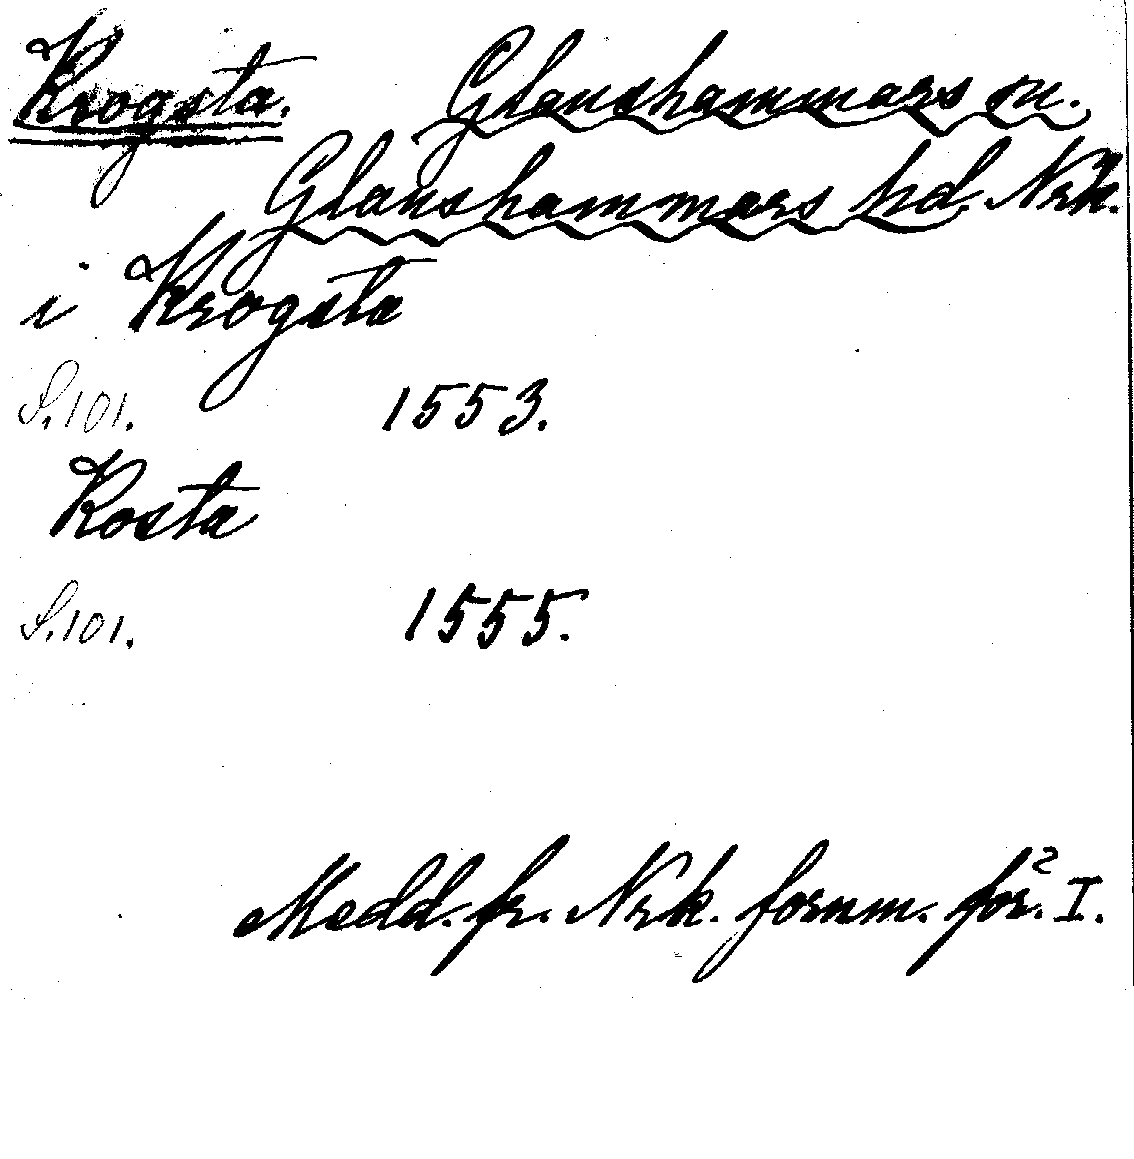 Krogsta. Glanshammars sn.
Glanshammars hd. Nrk.
i Krogsta
S. 101. 1553.
Kosta
S. 101. 1555.
Medd. fr. Nrk. fornm. för. I.